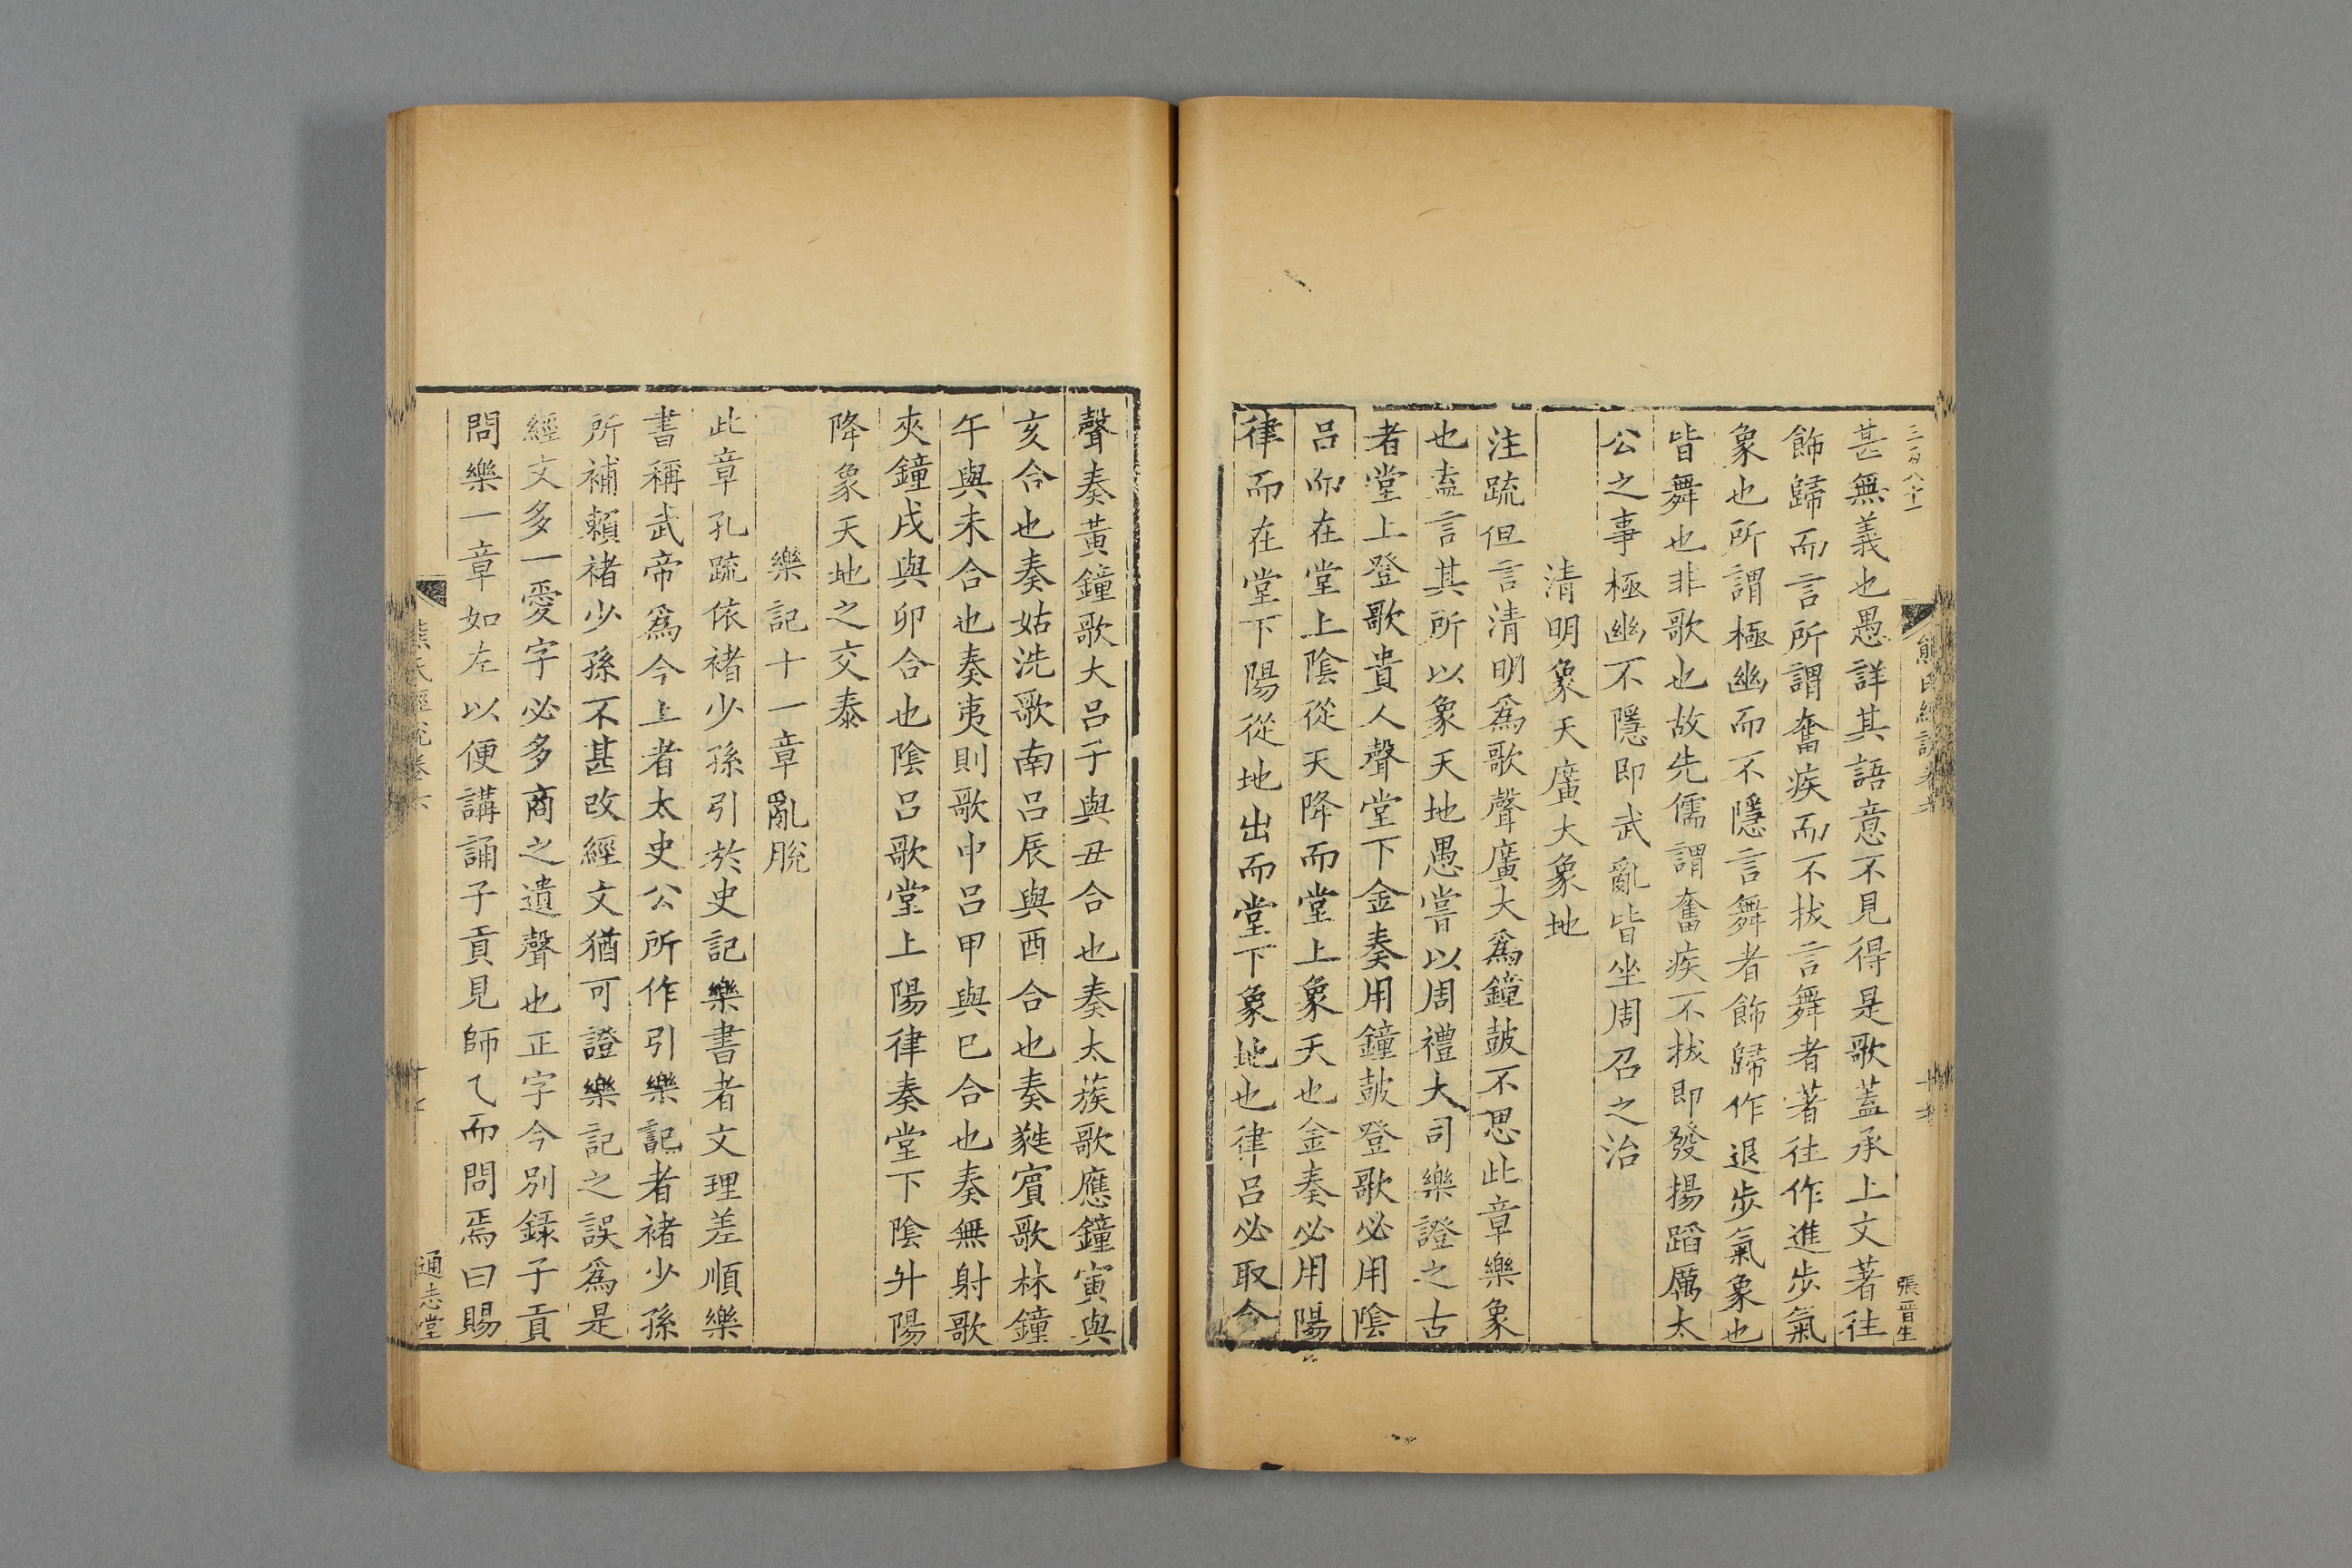 三百八十一
甚無義也愚詳其語意不見得是歌蓋承上文著往
飾歸而言所謂奮疾而不拔言舞者著往作進步氣
象也所謂極幽而不隱言舞者飾歸作退步氣象也
皆舞也非歌也故先儒謂奮疾不拔即發揚蹈厲太
公之事極幽不隱即武亂皆坐周召之治
清明象天廣大象地
注疏但言清明爲歌聲廣大爲鐘鼓不思此章樂象
也盍言其所以象天地愚嘗以周禮大司樂證之古
者堂上登歌貴人聲堂下金奏用鐘鼓登歌必用陰
呂而在堂上陰從天降而堂上象天也金奏必用陽
律而在堂下陽從地出而堂下象地也律呂必取合
張晉生
聲奏黃鐘歌大呂子與丑合也奏太蔟歌應鐘寅與
亥合也奏姑洗歌南呂辰與酉合也奏蕤賓歌林鐘
午與未合也奏夷則歌中呂甲與巳合也奏無射歌
夾鐘戌與卯合也陰呂歌堂上陽律奏堂下陰升陽
降象天地之交泰
樂記十一章亂脫
此章孔疏依褚少孫引於史記樂書者文理差順樂
書稱武帝爲今上者太史公所作引樂記者褚少孫
所補賴褚少孫不甚改經文猶可證樂記之誤爲是
經文多一愛字必多商之遺聲也正字今別録子貢
問樂一章如左以便講誦子貢見師乙而問焉曰賜
熊氏經說卷六
十七
通志堂